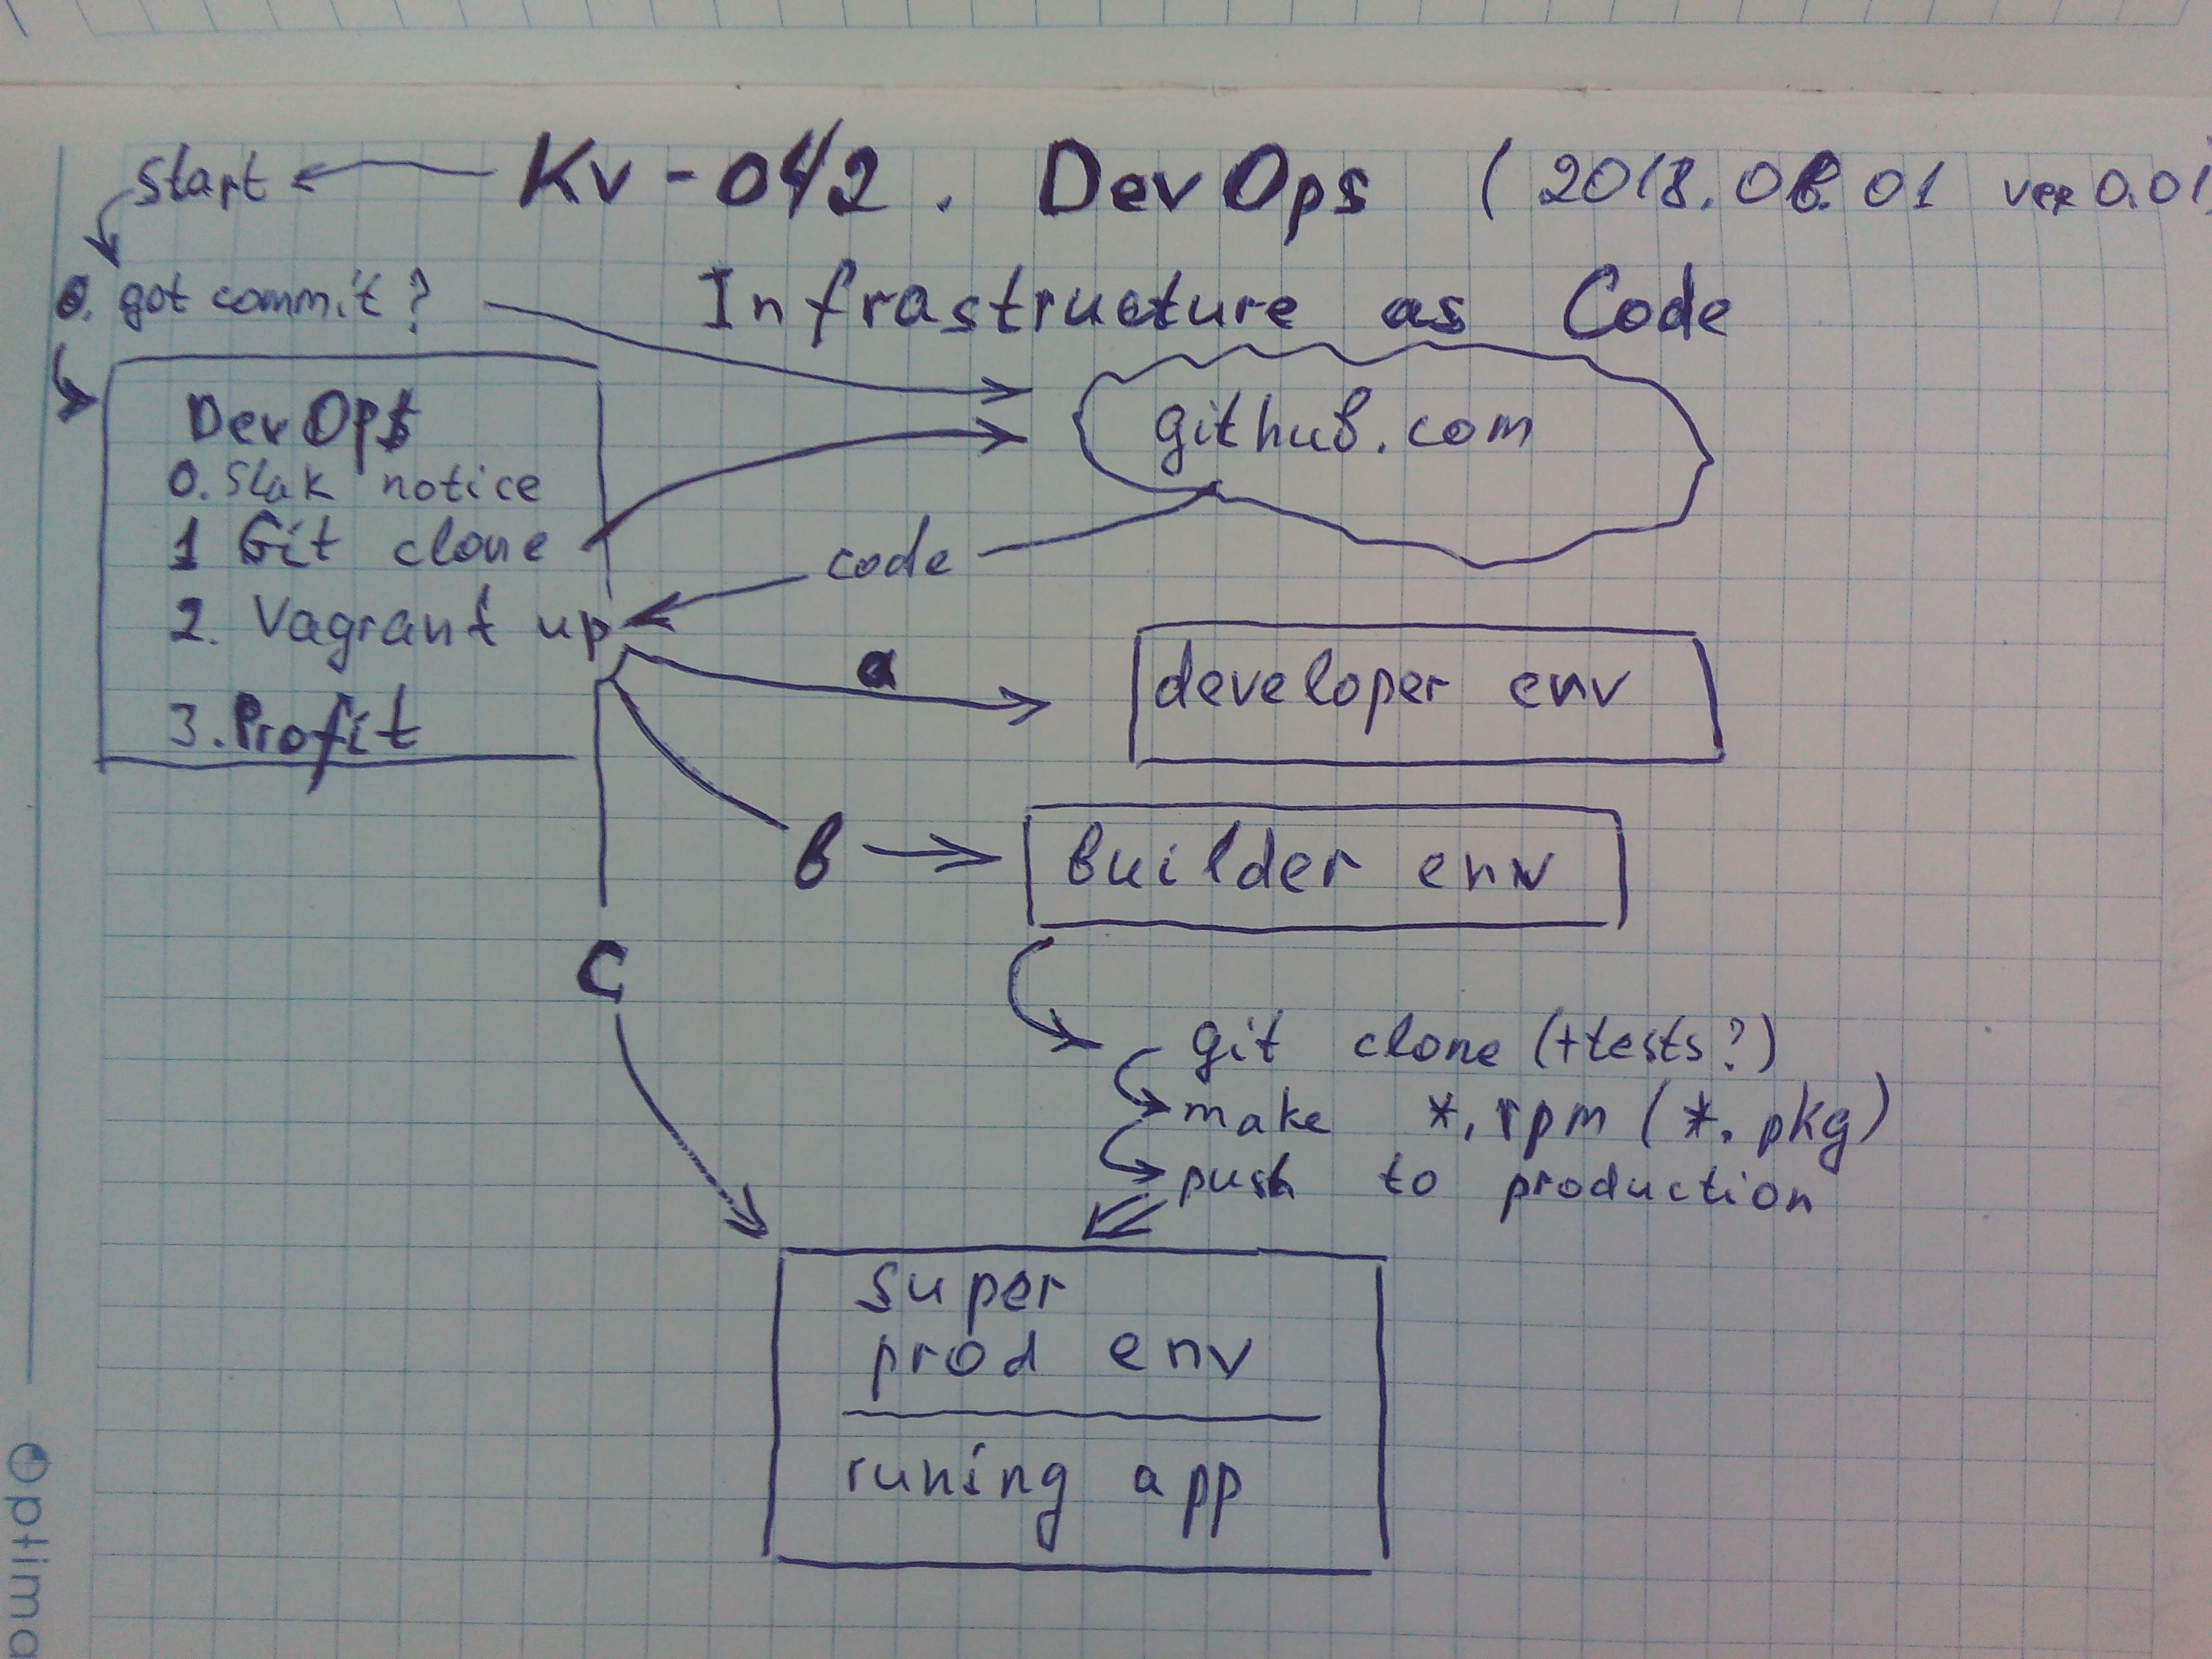 start Kv-042. DevOps (2018.08.01 ver 0.01)
0. got commit? Infrastructure as Code
DevOps
0. Slak notice
1 Git clone
2. Vagrant up
3. Profit
github.com
code
a
developer env
b
builder env
c
git clone (+tests?)
make *.rpm (*.pkg)
push to production
super
prod env
runing app
Optima